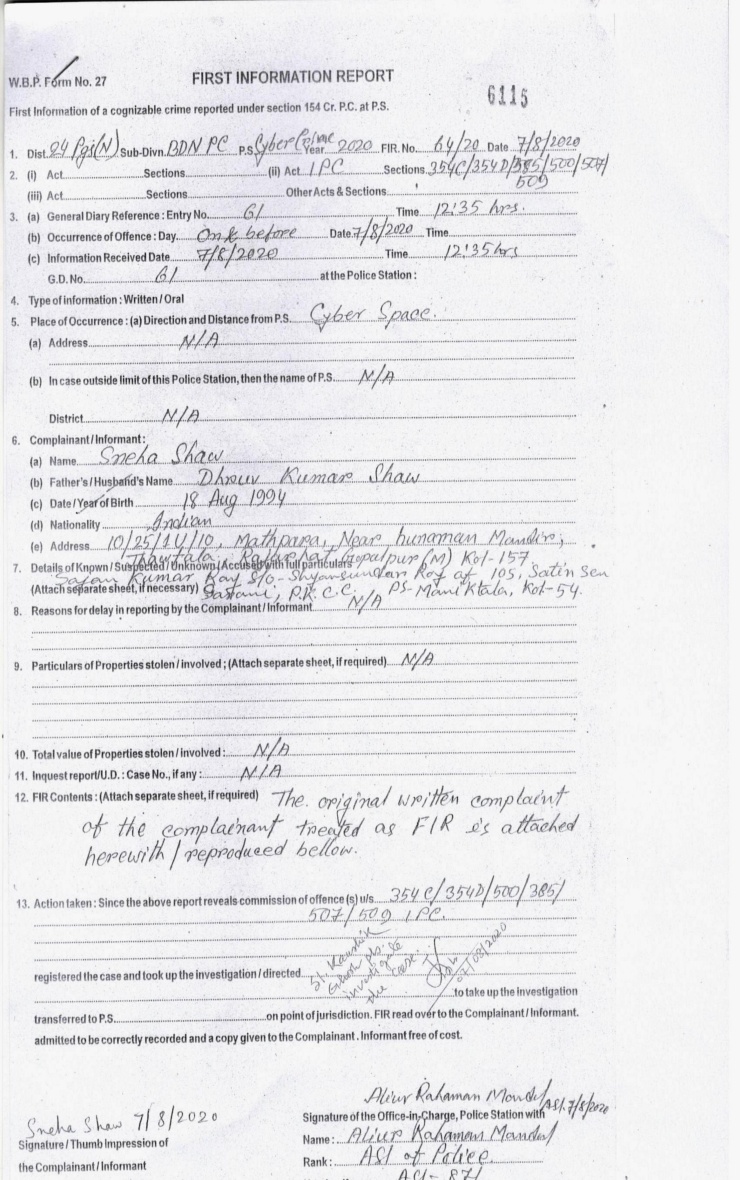 W.B.P. Form No. 27
FIRST INFORMATION REPORT
6115
First Information of a cognizable crime reported under section 154 Cr. P.C. at P.S.
1. Dist. 24 Pgs(N) Sub-Divn. BDN PC P.S. Cyber Crime Year 2020 FIR. No. 64/20 Date 7/8/2020
2. (i) Act Sections (ii) Act IPC Sections 354C/354D/385/500/507/
509
(iii) Act Sections Other Acts & Sections
3. (a) General Diary Reference : Entry No. 61 Time 12:35 hrs.
(b) Occurrence of Offence : Day. On & before Date 7/8/2020 Time
(c) Information Received Date 7/8/2020 Time 12:35 hrs
G.D. No. 61 at the Police Station :
4. Type of information : Written / Oral
5. Place of Occurrence : (a) Direction and Distance from P.S. Cyber Space.
(a) Address N/A
(b) In case outside limit of this Police Station, then the name of P.S. N/A
District N/A
6. Complainant / Informant :
(a) Name Sneha Shaw
(b) Father's / Husband's Name Dhruv Kumar Shaw
(c) Date / Year of Birth 18 Aug 1994
(d) Nationality Indian
(e) Address 10/25/10/10, Mathpara, Near hunaman Mandir,
Rajarhat Gopalpur (M) Kol-157
7. Details of Knpwn / Suspected / Unknown / Accused with full particulars
Kumar Ray S/O - Shyamsundar Roy of 105, Satin Sen
(Attach separate sheet, if necessary) Sarani, P.K.C.C. PS- Maniktala, Kol-54.
8. Reasons for delay in reporting by the Complainant / Informant N/A
9. Particulars of Properties stolen / involved ; (Attach separate sheet, if required) N/A
10. Total value of Properties stolen / involved : N/A
11. Inquest report/U.D. : Case No., if any : N/A
12. FIR Contents : (Attach separate sheet, if required) The original written complaint
of the complainant treated as FIR is attached
herewith / reproduced bellow.
13. Action taken : Since the above report reveals commission of offence (s) u/s. 354C/354D/500/385/
507/509 IPC.
SI. Kaushik
Ghosh pls.
investigate
the case.
07/08/2020
registered the case and took up the investigation / directed
to take up the investigation
transferred to P.S. on point of jurisdiction. FIR read over to the Complainant / Informant.
admitted to be correctly recorded and a copy given to the Complainant . Informant free of cost.
Sneha Shaw 7/8/2020
Signature / Thumb Impression of
the Complainant / Informant
Aliur Rahaman Mondal ASI. 7/8/2020
Signature of the Office-in-Charge, Police Station with
Name : Aliur Rahaman Mondal
Rank : ASI of Police
ASI- 871